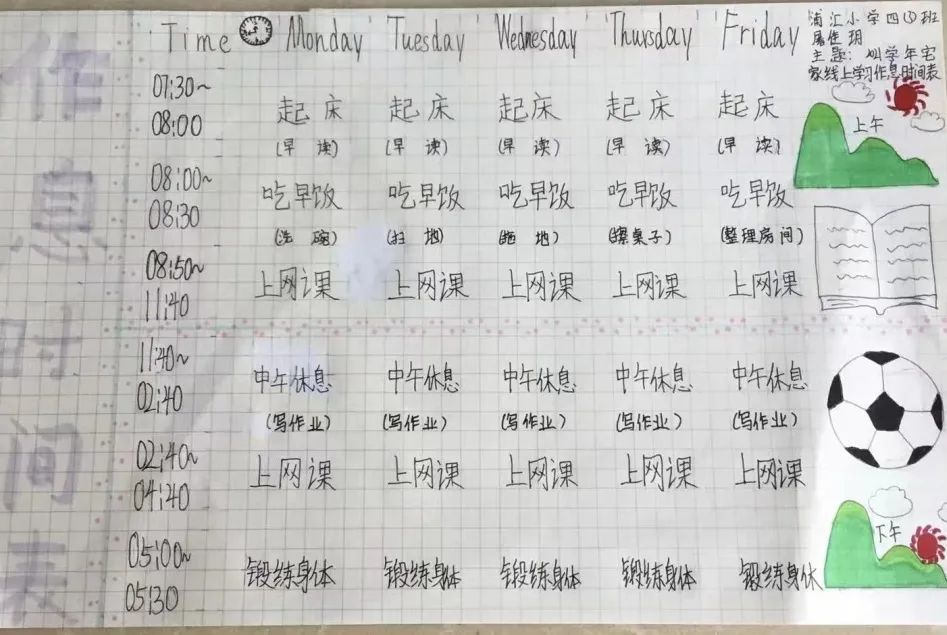 作息时间表
Time Monday Tuesday Wednesday Thursday Friday
浦汇小学四①班
屠佳玥
主题：灿学年宅
家线上学习作息时间表
07:30~
08:00
起床 起床 起床 起床 起床
(早读) (早读) (早读) (早读) (早读)
上午
08:00~
08:30
吃早饭 吃早饭 吃早饭 吃早饭 吃早饭
(洗碗) (扫地) (拖地) (擦桌子) (整理房间)
08:50~
11:40
上网课 上网课 上网课 上网课 上网课
11:40~
02:40
中午休息 中午休息 中午休息 中午休息 中午休息
(写作业) (写作业) (写作业) (写作业) (写作业)
02:40~
04:40
上网课 上网课 上网课 上网课 上网课
下午
05:00~
05:30
锻练身体 锻练身体 锻练身体 锻练身体 锻练身体